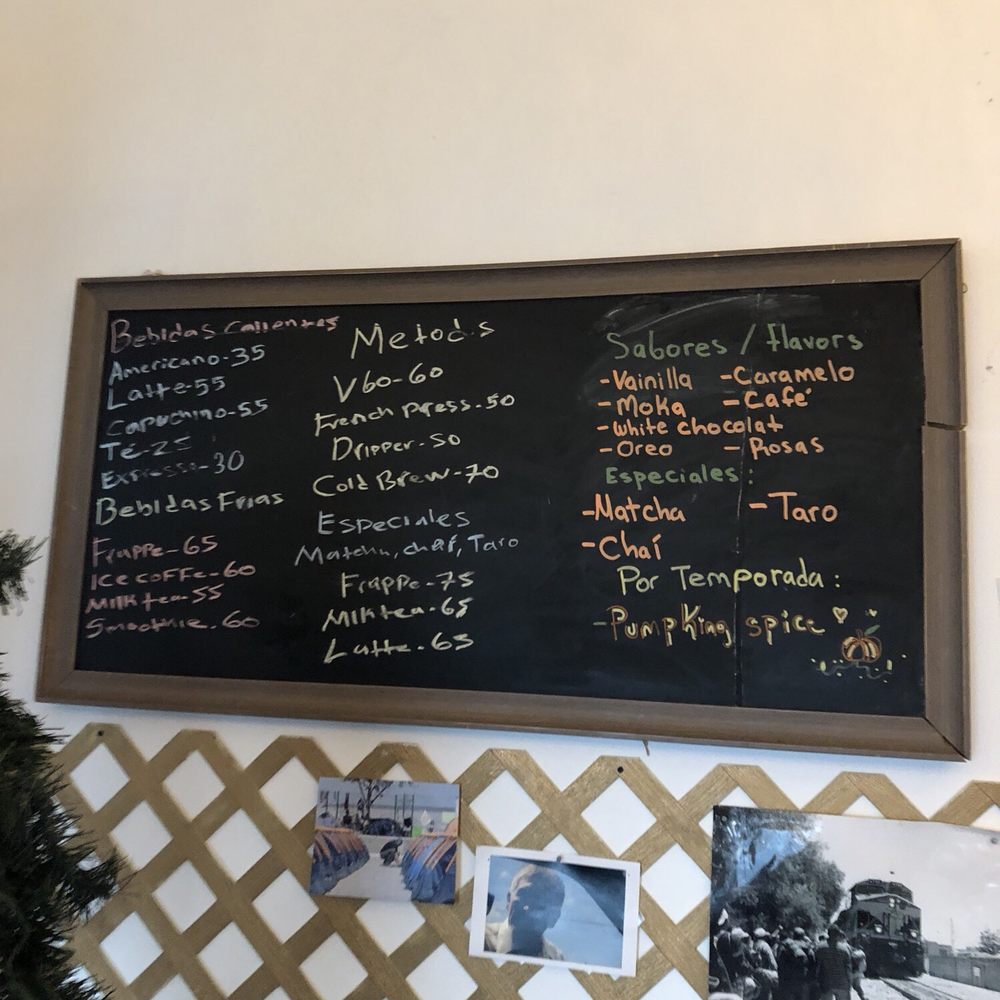 Bebidas Calientes
Americano-35
Latte-55
Capuchino-55
Té-25
Expresso-30
Bebidas Frias
Frappe-65
Ice coffe-60
Milk tea-55
Smoothie.60
Metods
V60-60
French Press.50
Dripper-50
Cold Brew-70
Especiales
Matcha, chaí, Taro
Frappe-75
Milk tea-65
Latte-65
Sabores / flavors
-Vainilla -Caramelo
-Moka -Café
-White chocolat
-Oreo -Rosas
Especiales:
-Matcha -Taro
-Chaí
Por Temporada:
-Pumpking spice